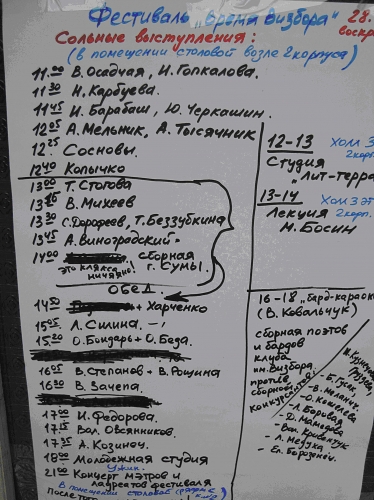 Фестиваль "Время Визбора" 28.
Сольные выступления: воскр
(в помещении столовой возле 2 корпуса)
11.00 В. Осадчая, И. Гопкалова.
11 30 Н. Карбуева.
11 45 И. Барабаш, Ю. Черкашин.
12 05 А. Мельник, А. Тысячник
12 25 Сосновы.
12 40 Копычко
13 00 Т. Стогова
13 15 В. Михеев
13 30 С. Дорофеев, Т. Беззубкина
13 45 А. Виноградский
14 00 сборная
это клякса ничайно! г. Сумы.
ОБЕД.
14 50 + Харченко
15 05 Л. Силина.
15 20 О. Бондарь + О. Беда.
16 05 В. Степанов + В. Рощина
16 30 В. Зачепа.
17 00 И. Федорова.
17 15 Вал. Овсянников.
17 35 А. Козинач.
18 00 Молбежная студия
Ужин.
21 00 Концерт мэтров и
лауреатов фестиваля
в помещении столовой (рядом с
После того
12-13 Холл 3
2 корп.
Студия
"Лит-терра
13-14 Холл 3 эт
2 корп.
Лекция
М. Босин
16-18 "Бард-караоке
(В. Ковальчук)
сборная поэтов
и бардов
клуба
им. Визбора
против
сборной
конкурсантов
- Б. Гусев,
- В. Меланич
- О. Кошелева
- Л. Боровая
- Д. Мамедов
- Вал. Кривентук
- Л. Медука
- Ев. Борозеней.